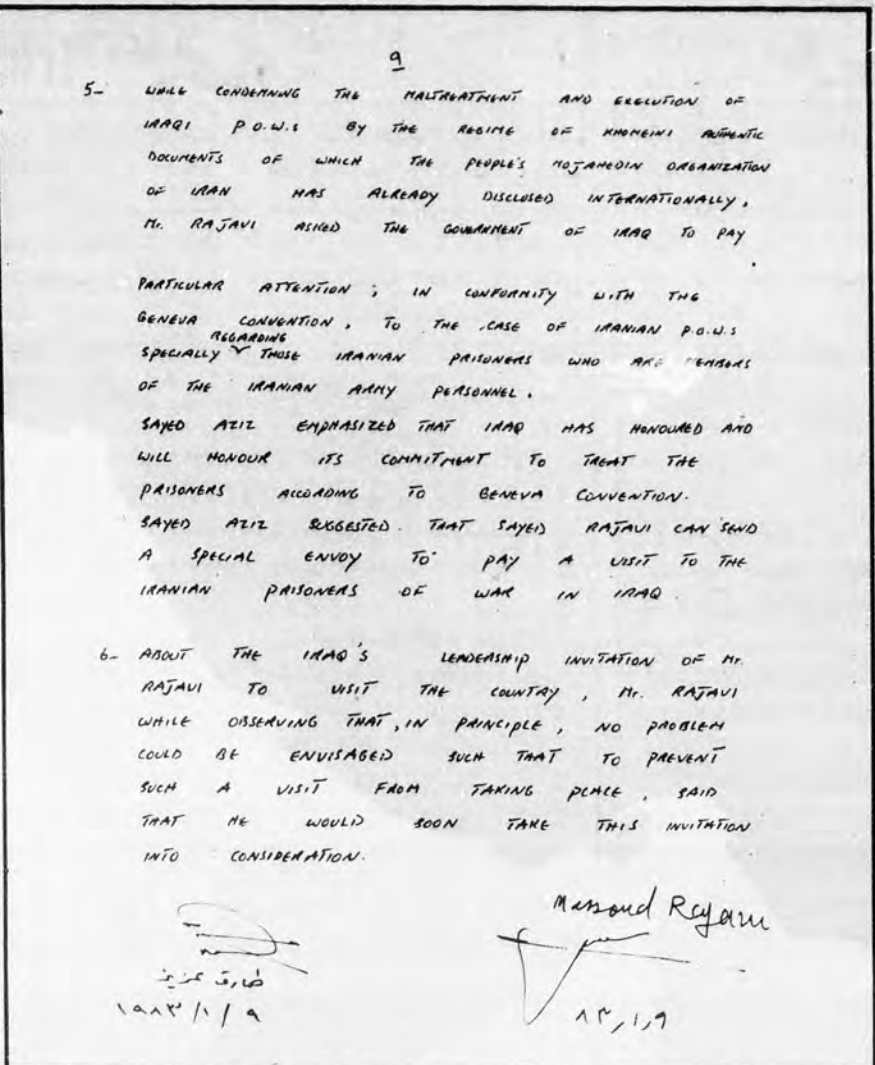 9
5- WHILE CONDEMNING THE MALTREATMENT AND EXECUTION OF
IRAQI P.O.W.s BY THE REGIME OF KHOMEINI AUTHENTIC
DOCUMENTS OF WHICH THE PEOPLE'S MOJAHEDIN ORGANIZATION
OF IRAN HAS ALREADY DISCLOSED INTERNATIONALLY,
Mr. RAJAVI ASKED THE GOVERNMENT OF IRAQ TO PAY
PARTICULAR ATTENTION ; IN CONFORMITY WITH THE
GENEVA CONVENTION, TO THE CASE OF IRANIAN P.O.W.s
REGARDING
SPECIALLY THOSE IRANIAN PRISONERS WHO ARE MEMBERS
OF THE IRANIAN ARMY PERSONNEL.
SAYED AZIZ EMPHASIZED THAT IRAQ HAS HONOURED AND
WILL HONOUR ITS COMMITMENT TO TREAT THE
PRISONERS ACCORDING TO GENEVA CONVENTION.
SAYED AZIZ SUGGESTED THAT SAYED RAJAVI CAN SEND
A SPECIAL ENVOY TO PAY A VISIT TO THE
IRANIAN PRISONERS OF WAR IN IRAQ.
6- ABOUT THE IRAQ'S LEADERSHIP INVITATION OF Mr.
RAJAVI TO VISIT THE COUNTRY, Mr. RAJAVI
WHILE OBSERVING THAT, IN PRINCIPLE, NO PROBLEM
COULD BE ENVISAGED SUCH THAT TO PREVENT
SUCH A VISIT FROM TAKING PLACE, SAID
THAT HE WOULD SOON TAKE THIS INVITATION
INTO CONSIDERATION.
Massoud Rajavi
طارق عزيز
١٩٨٣/١/٩
٨٣,١,٩